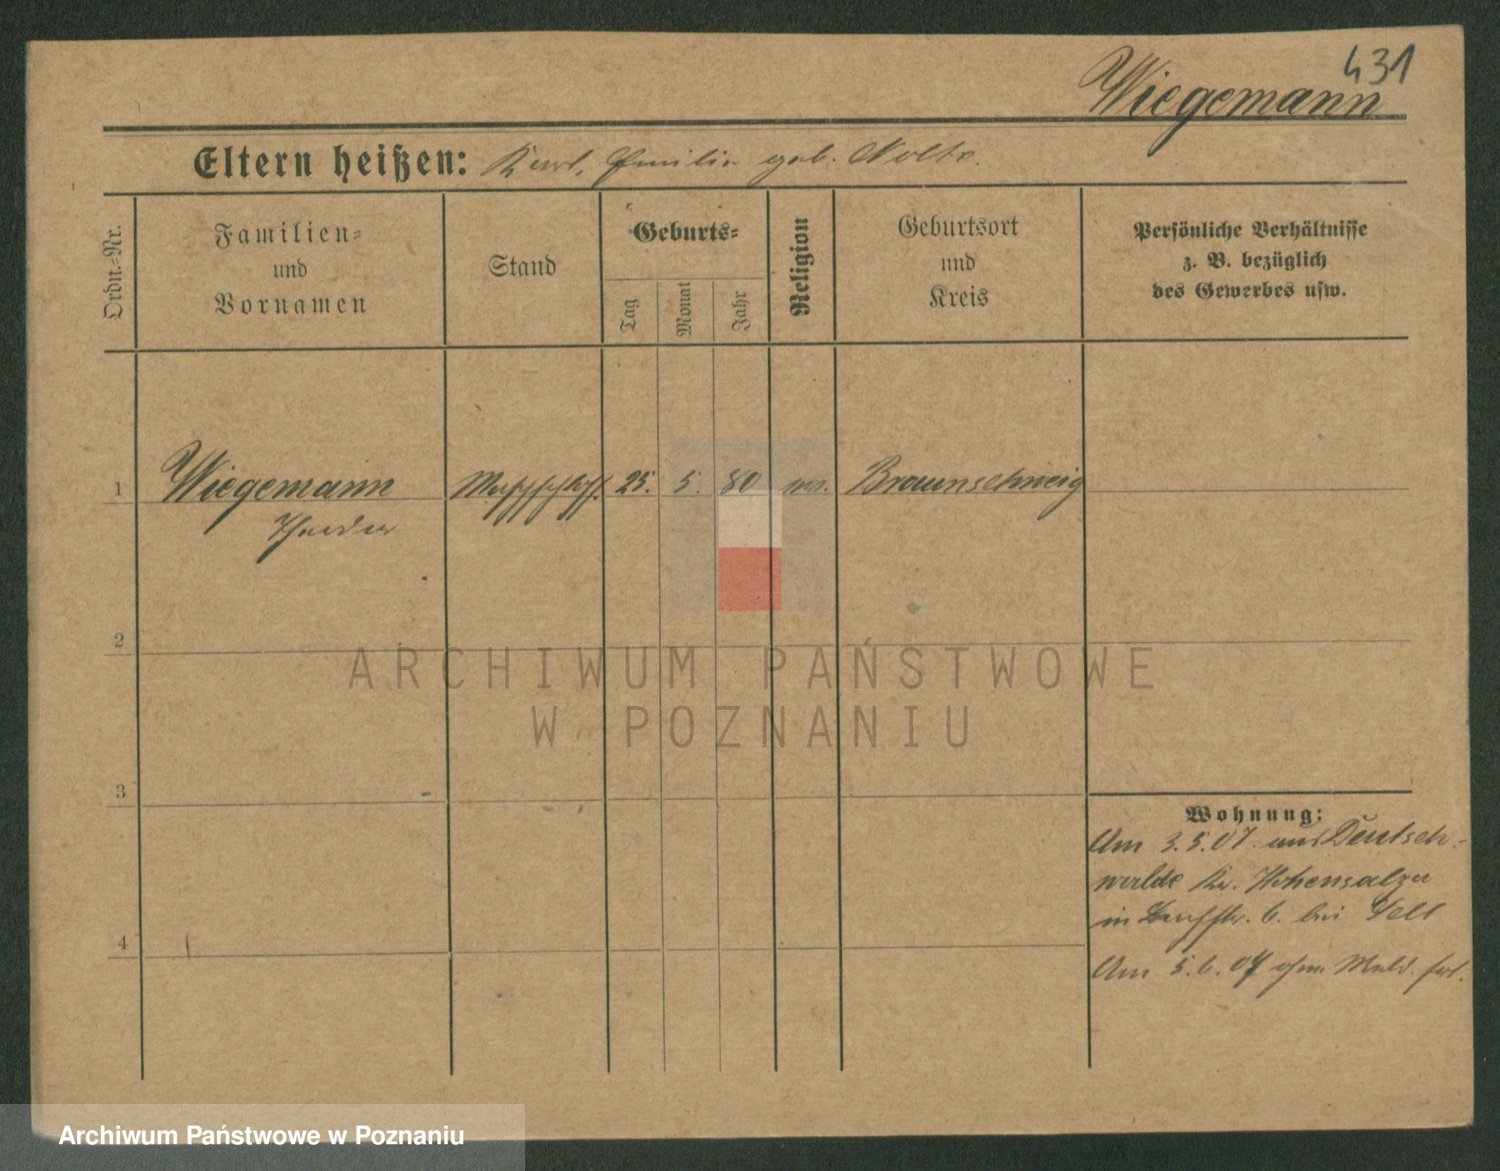 431
Wiegemann
Eltern heißen: Karl, Emilie geb. Nolte.
Ordn.-Nr.
Familien-
und
Vornamen
Stand
Geburts-
Tag
Monat
Jahr
Religion
Geburtsort
und
Kreis
Persönliche Verhältnisse
z. B. bezüglich
des Gewerbes usw.
1 Wiegemann 25. 5. 80 Braunschweig
Theodor
2
3
4
Wohnung:
Am 3.5.07. aus Deutsch-
walde Kr. Hohensalza
in 6. bei Sell
Am 5.6.07 ohne Meld. fort.
ARCHIWUM PAŃSTWOWE
W POZNANIU
Archiwum Państwowe w Poznaniu